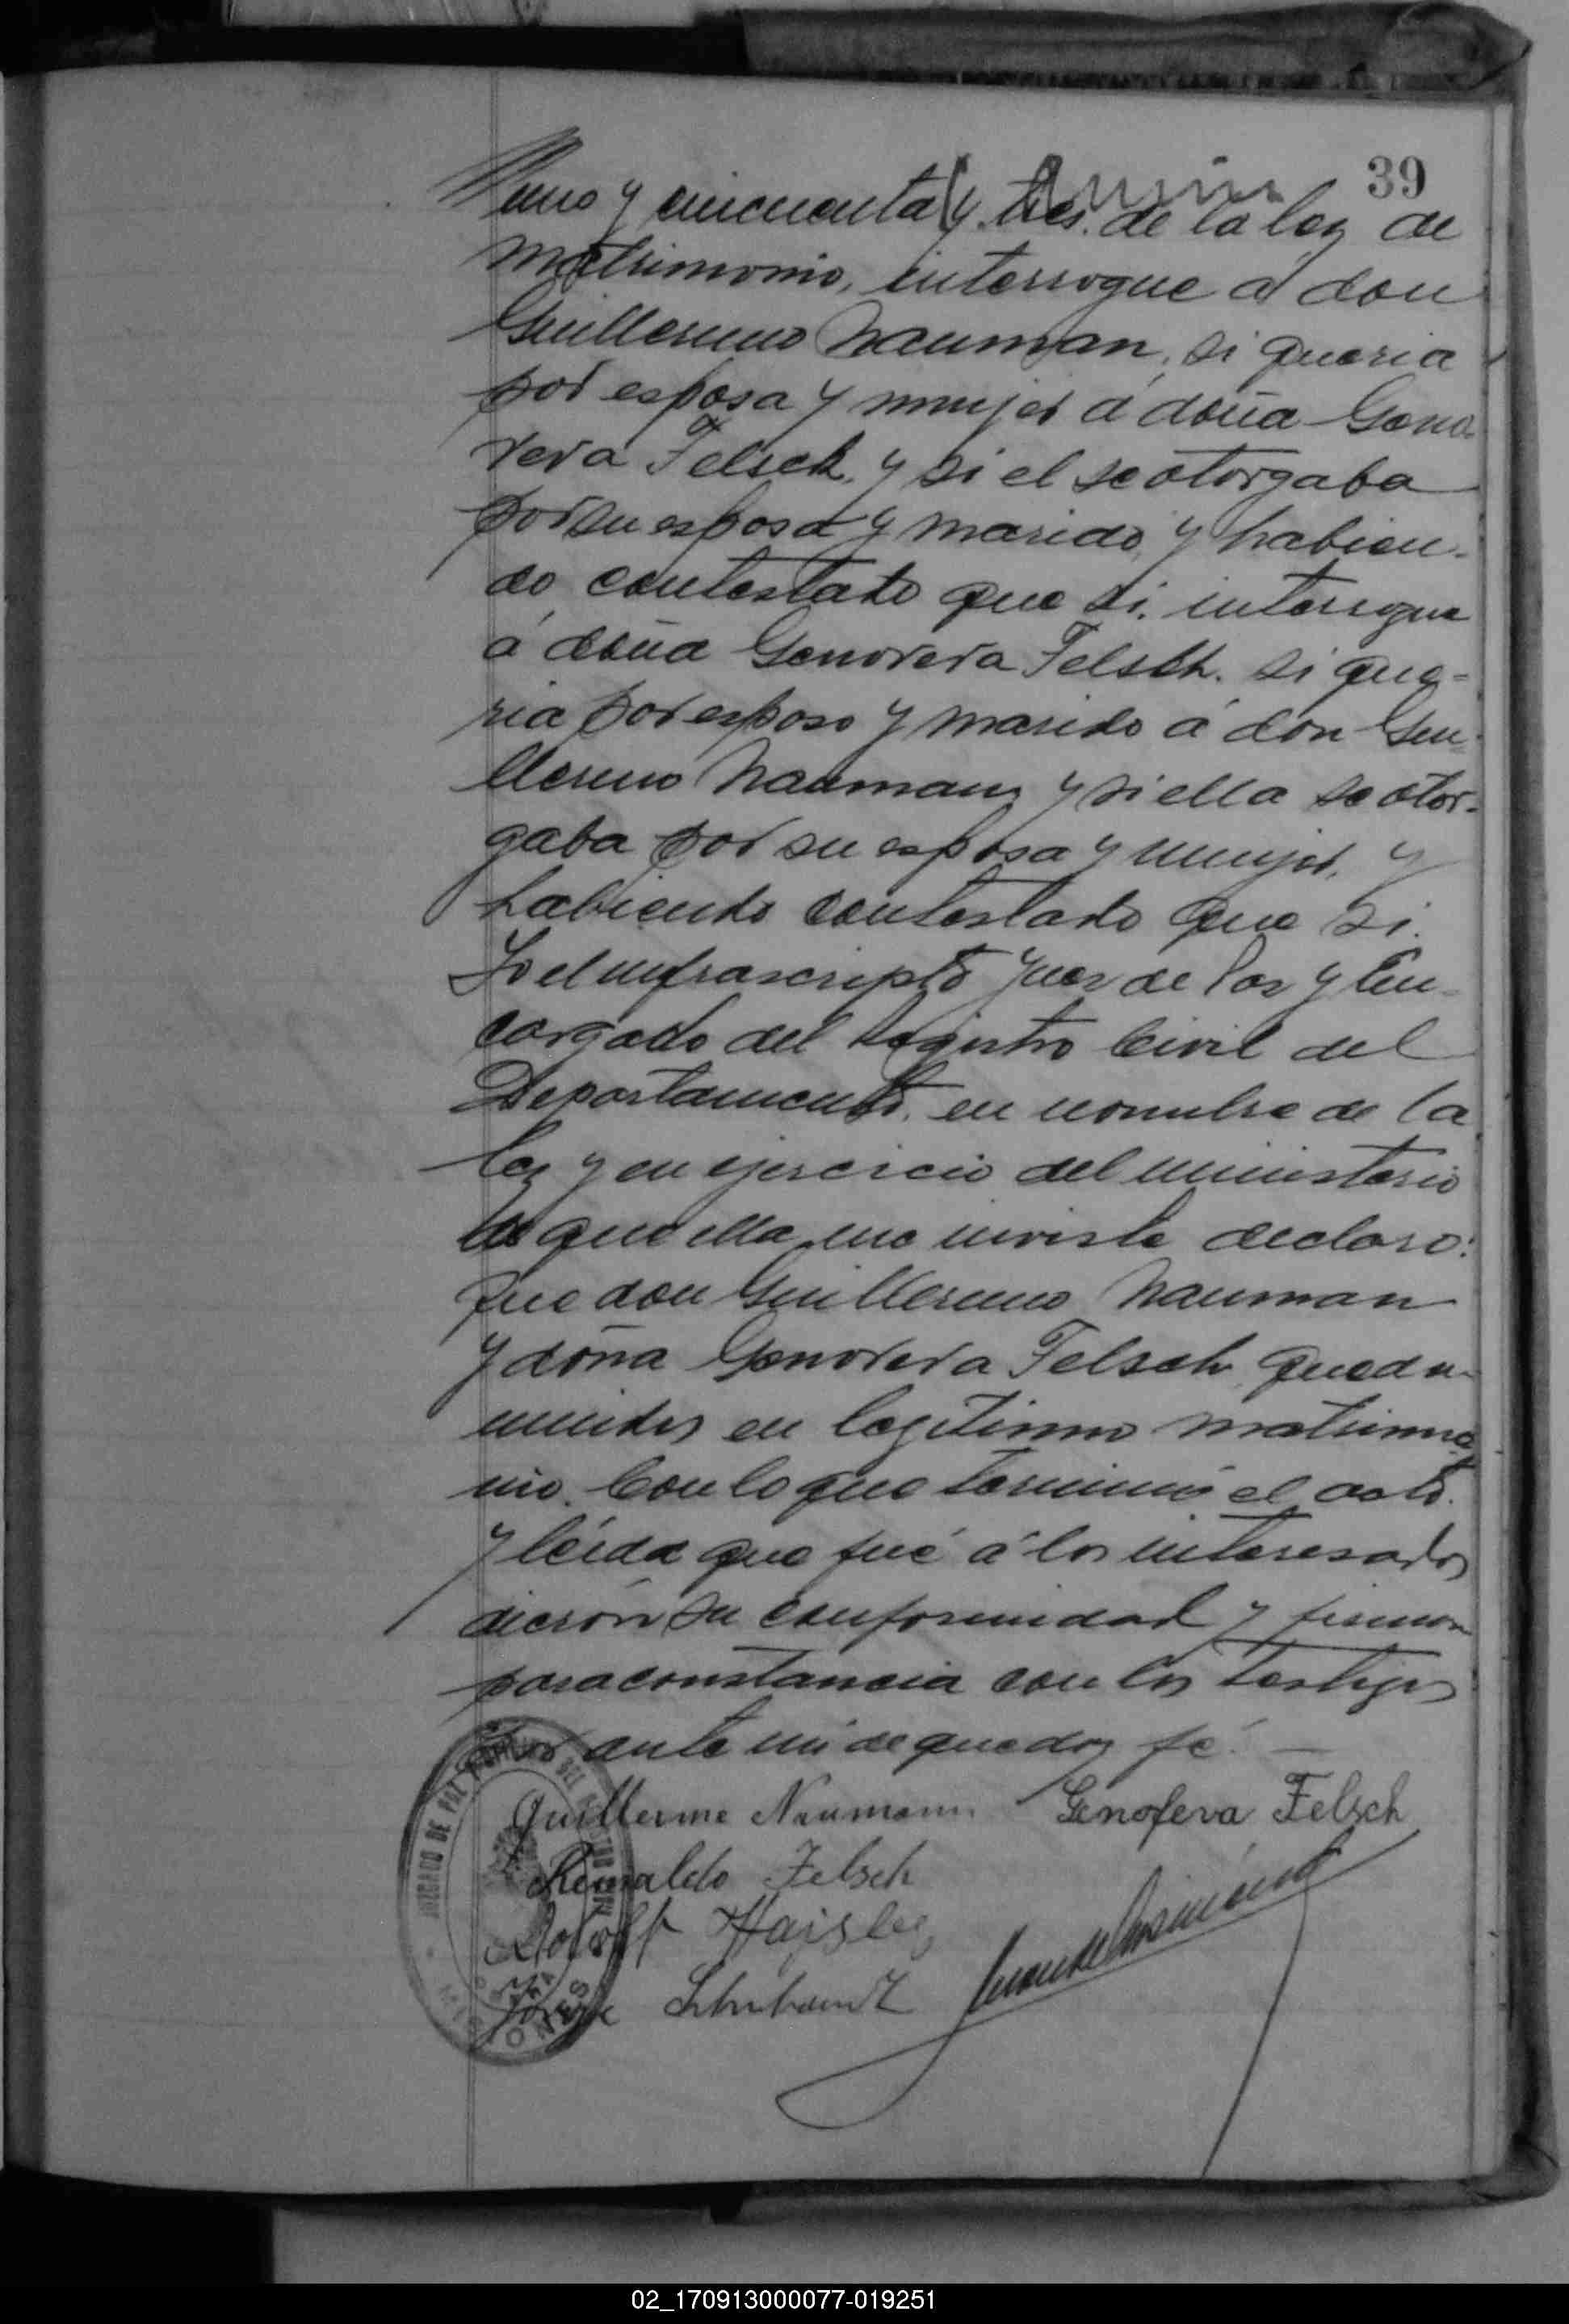 39
uno y cincuenta y tres. de la ley de
matrimonio, interrogue a don
Guillermo Nauman, si queria
por esposa y mujer á doña Geno-
veva Felsch, y si el se otorgaba
por su esposo y marido, y habien-
do contestado que si, interrogue
á doña Genoveva Felsch. si que-
ria por esposo y marido á don Gui-
llermo Naumann y si ella se otor-
gaba por su esposa y mujer, y
habiendo contestado que si.
Yo el infrascripto Juez de Paz y En-
cargado del Registro Civil del
Departamento, en nombre de la
ley y en ejercicio del ministerio
de que ella me inviste declaro:
que don Guillermo Nauman
y doña Genoveva Felsch, quedan
unidos en legitimo matrimo-
nio. Con lo que terminó el acto.
y leida que fué á los interesados
dieron su conformidad y firman
para constancia con los testigos
por ante mi de que doy fé.
Guillerme Naumann Genofeva Felsch
Reinaldo Felsch
JUZGADO DE PAZ
MISIONES
02_170913000077-019251